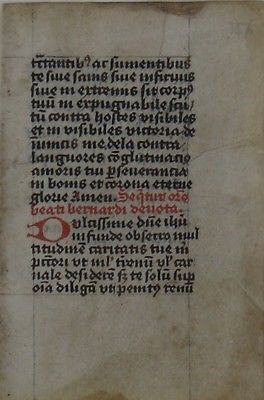 tractantibꝰ ac sumentibus
te siue sanis siue infirmis
siue in extremis sit corpꝰ
tuū in expugnabile scu
tū contra hostes visibiles
et in visibiles victoria de
uinctis me. dela contra
languores coglutinacio
amoris tui p seuerancia
in bonis et corona eterne
glorie Amen. Seqtur oro
beati bernardi deuota.
Dulcissime dn̄e ihū
infunde obsecro mul
titudinem caritatis tue in
pectori vt nil
nale desiderē sꝫ te solū sup
oīa diligā vt penitꝰ